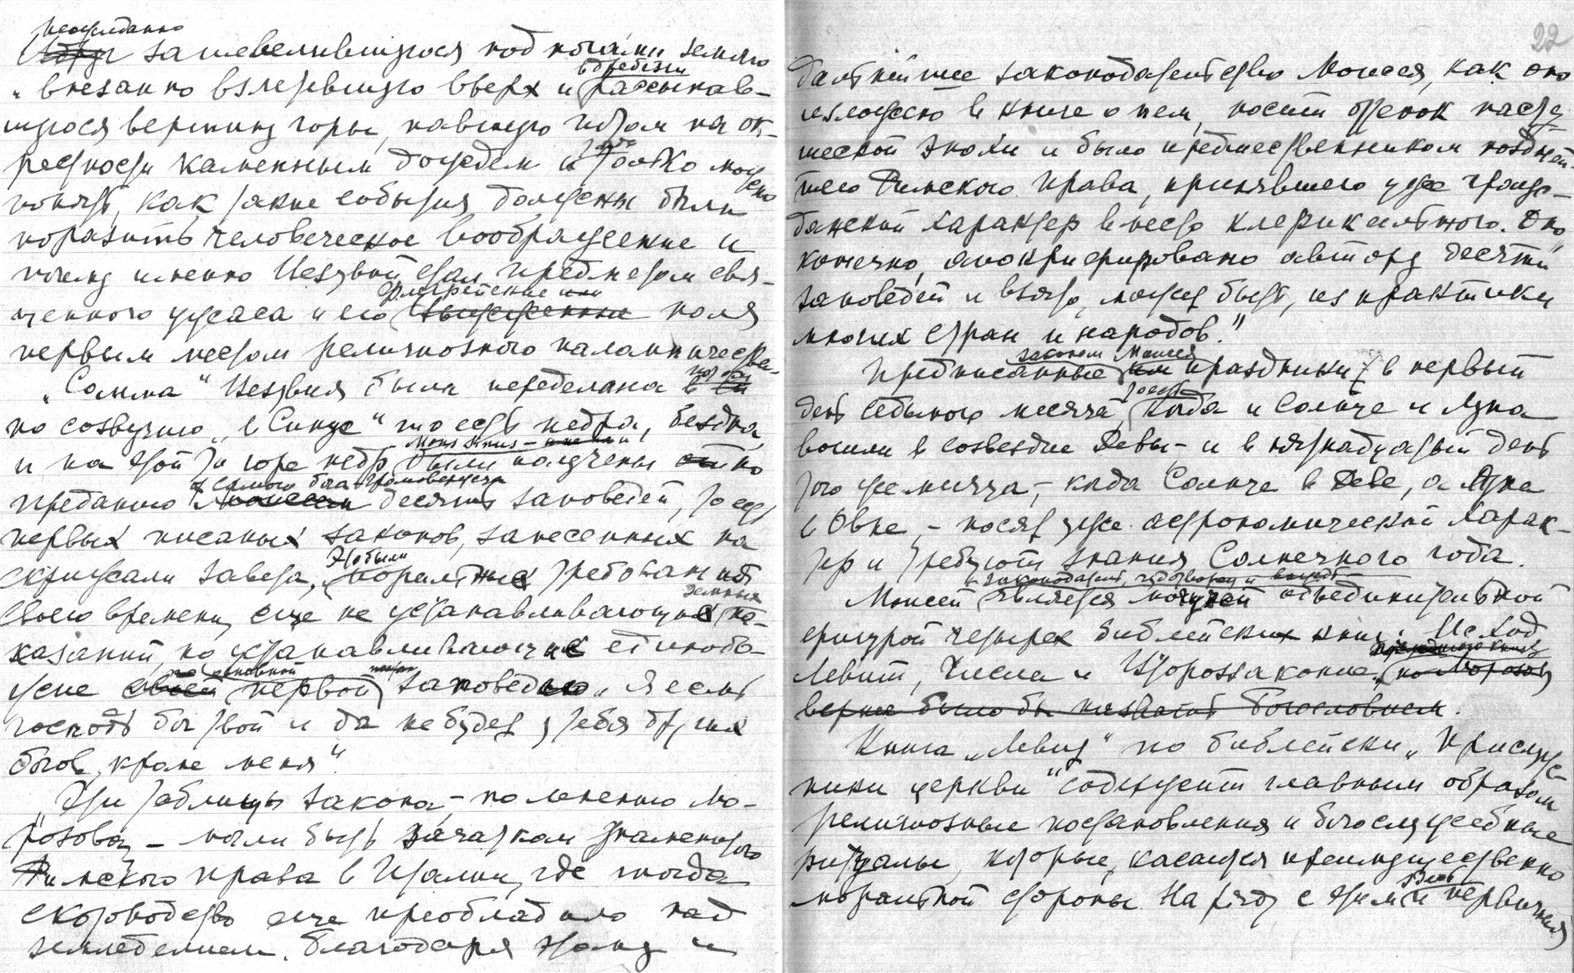 неожиданно
зашевелившуюся под ногами землю
и внезапно взлетевшую вверх и вдребезги рассыпав-
шуюся вершину горы, павшую потом на ок-
рестности каменным дождем и только можно
понять, как такие события должны были
поразить человеческое воображение и
почему именно Везувий стал предметом свя-
щенного ужаса и его Флегрейские поля
первым местом религиозного паломничества.
„Сомма" Везувия была переделана
по созвучию „в Синую" то есть недра, бездна,
и на этой то горе недр были получены по
преданию от самого бога-Громовержца десять заповедей, то есть
первых писаных законов, занесенных на
скрижали завета. Это были моральные требования
своего времени, еще не устанавливающие земных на-
казаний, но устанавливающие единобо-
жие по основной первой заповеди „Я есмь
господь бог твой и да не будет у тебя других
богов, кроме меня".
„Эти таблицы закона, – по мнению Мо-
розова, – могли быть зачатком знаменитого
Римского права в Италии, где тогда
скотоводство еще преобладало над
земледелием. Благодаря этому и
22
дальнейшее законодательство Моисея, как оно
изложено в книге о нем, носит оттенок пасту-
шеской эпохи и было предшественником поздней-
шего Римского права, принявшего уже граж-
данский характер вместо клерикального. Оно
конечно, апокрифировано автору десяти
заповедей и взято, может быть, из практики
многих стран и народов."
Предписанные законом Моисея праздники – в первый
день седьмого месяца, когда и Солнце и Луна
вошли в созвездие Девы – и в пятнадцатый день
того же месяца, – когда Солнце в Деве, а Луна
в Овне, – носят уже астрономический харак-
тер и требуют знания Солнечного года.
законодатель, чудотворец и
Моисей является объединительной
фигурой четырех библейских книг: Исход
Левит, Числа и Второзаконие, (по Морозову
вернее было бы назвать Богословием.
Книга „Левит" по библейски „Прислуж-
ники церкви" содержит главным образом
религиозные постановления и богослужебные
ритуалы, которые, касаются преимущественно
моральной стороны. Наряду с этим и первичная